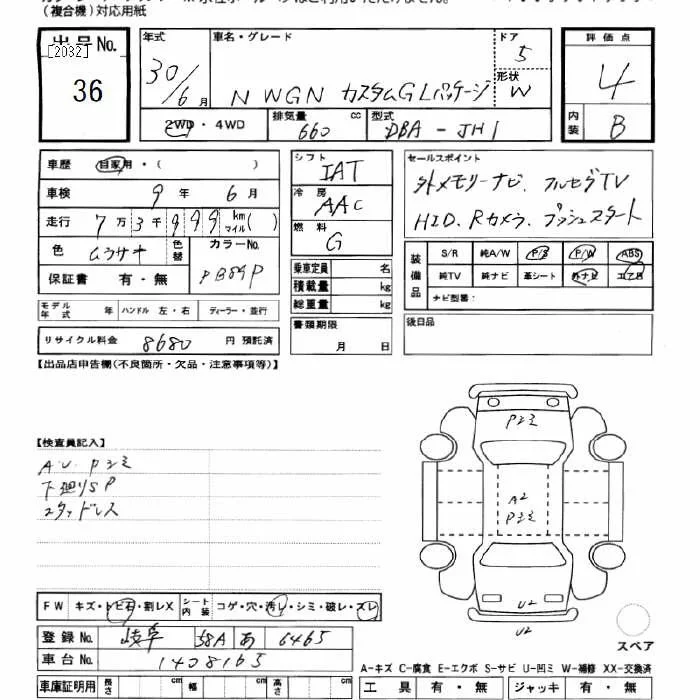 (複合機)対応用紙
出品No.
[2032]
36
年式
30/6月
車名・グレード
N WGN カスタムGLパッケージ
ドア
5
形状
W
2WD・4WD
排気量 660 cc
型式 DBA-JH1
評価点
4
内装
B
車歴 自家用・( )
車検 9年 6月
走行 7万3千999 km マイル( )
色 ムラサキ 色替 カラーNo.
PB89P
保証書 有・無
モデル年式 年 ハンドル 左・右 ディーラー・並行
リサイクル料金 8680 円 預託済
シフト
IAT
冷房
AAC
燃料
G
乗車定員 名
積載量 kg
総重量 kg
書類期限
月 日
セールスポイント
外メモリーナビ、フルセグTV
HID、Rカメラ、プッシュスタート
装備品
S/R 純A/W P/S P/W ABS
純TV 純ナビ 革シート 外ナビ エアB
ナビ型番:
後日品
【出品店申告欄(不良箇所・欠品・注意事項等)】
【検査員記入】
A・U、Pシミ
下廻りSP
スタッドレス
Pシミ
A2
Pシミ
U2
U2
FW キズ・トビ石・割レX シート内装 コゲ・穴・汚レ・シミ・破レ・スレ
登録No. 岐阜 58A あ 6465
車台No. 1408165
車庫証明用 長さ cm 幅 cm 高さ cm
スペア
A-キズ C-腐食 E-エクボ S-サビ U-凹ミ W-補修 XX-交換済
工具 有・無 ジャッキ 有・無